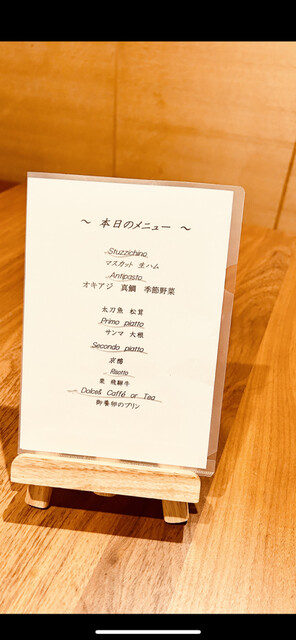 ～ 本日のメニュー ～
Stuzzichino
マスカット 生ハム
Antipasto
オキアジ 真鯛 季節野菜
太刀魚 松茸
Primo piatto
サンマ 大根
Secondo piatto
京鴨
Risotto
栗 飛騨牛
Dolce& Caffé or Tea
御養卵のプリン